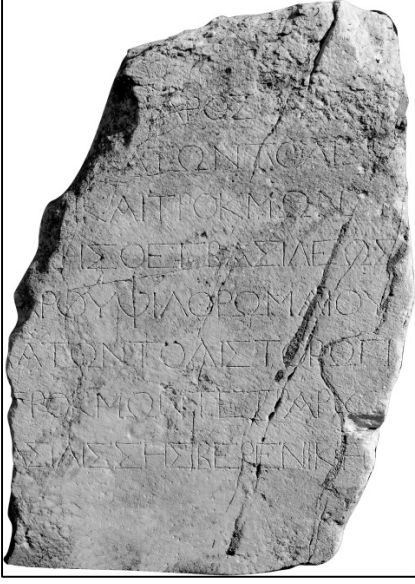 ΡΟΣ
ΑΤΩΝΤΟΛΙΣ
ΚΑΙΤΡΟΚΜΩΝ
ΗΣΟΕΓΒΑΣΙΛΕΩΣ
ΡΟΥΦΙΛΟΡΩΜΑΙΟΥ
ΑΤΩΝΤΟΛΙΣΤΟΒΩΓΙ
ΤΡΟΚΜΩΝΤΕΤΡΑΡΧ
ΣΙΛΙΣΣΗΣΒΕΡΕΝΙΚΗΣ